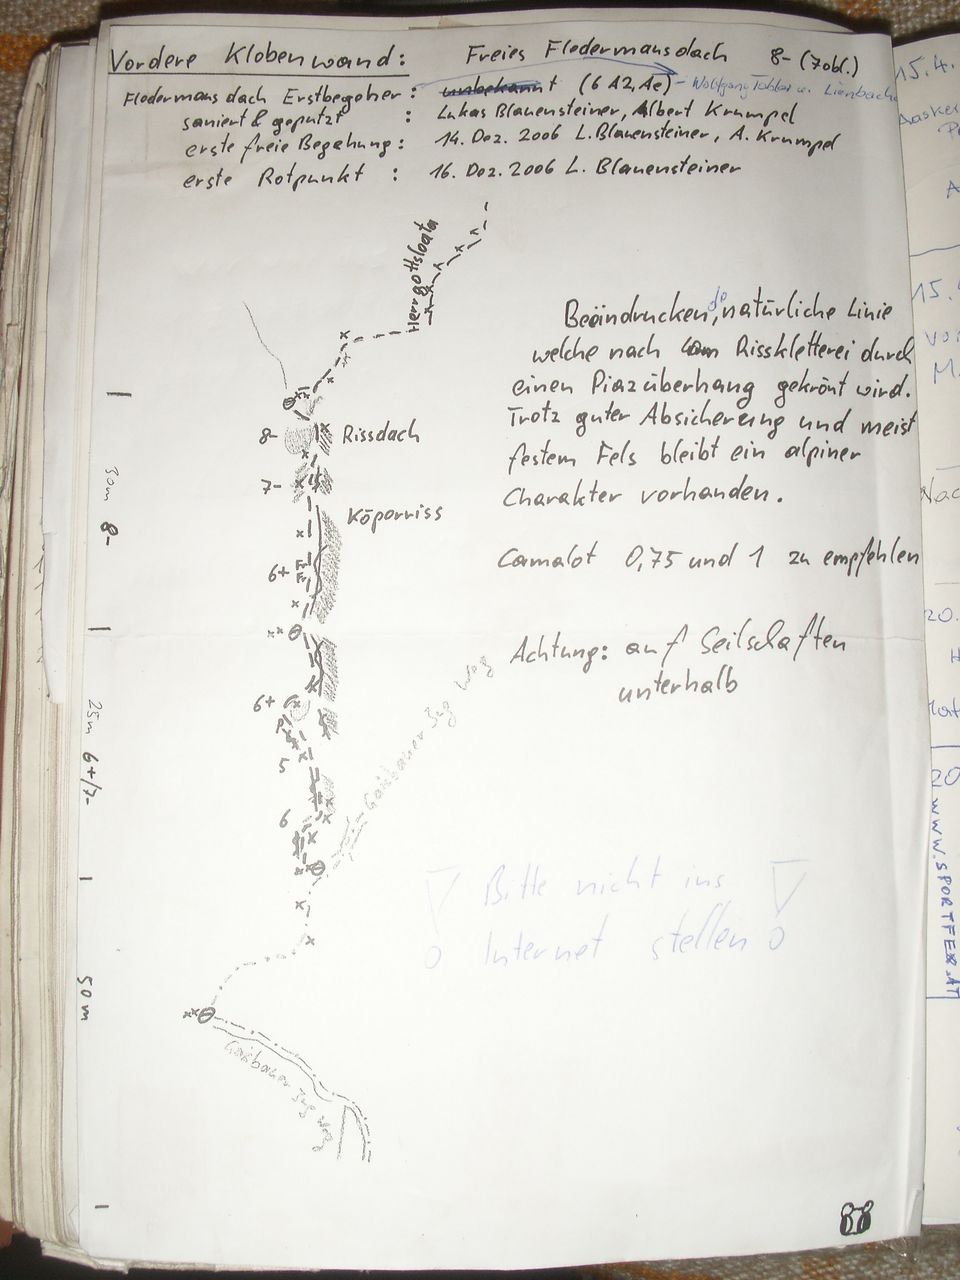 Vordere Klobenwand: Freies Fledermausdach 8- (7obl.)
Fledermausdach Erstbegeher: unbekannt (6 A2, Ae) - Wolfgang u.
saniert & geputzt : Lukas Blauensteiner, Albert Krumpel
erste freie Begehung: 14. Dez. 2006 L. Blauensteiner, A. Krumpel
erste Rotpunkt : 16. Dez. 2006 L. Blauensteiner
Herrgottsloata
Beeindruckende, natürliche Linie
welche nach Risskletterei durch
einen Piazüberhang gekrönt wird.
Trotz guter Absicherung und meist
festem Fels bleibt ein alpiner
Charakter vorhanden.
Camalot 0,75 und 1 zu empfehlen
Achtung: auf Seilschaften
unterhalb
8- Rissdach
7-
Köperriss
30m 8-
6+
6+
5
6
25m 6+/7-
Gaisbauer Zug Weg
Bitte nicht ins
Internet stellen
50m
Gaisbauer Zug Weg
88
15.4.
15.
20.
20
WWW.SPORTFEX.AT